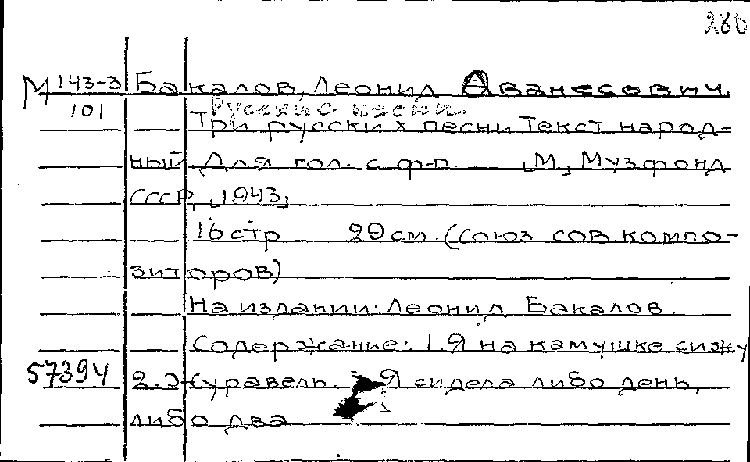 280
М 143-3 Бакалов, Леонид Аванесович
101 Русские песни.
Три русских песни Текст народ-
ный Для гол. с ф-п. М, Музфонд
СССР, 1943,
16 стр 29 см. (Союз сов компо-
зиторов)
На издании: Леонид Бакалов.
Содержание: 1. Я на камушке сижу
57394 2. Журавель. Я сидела либо день,
либо два